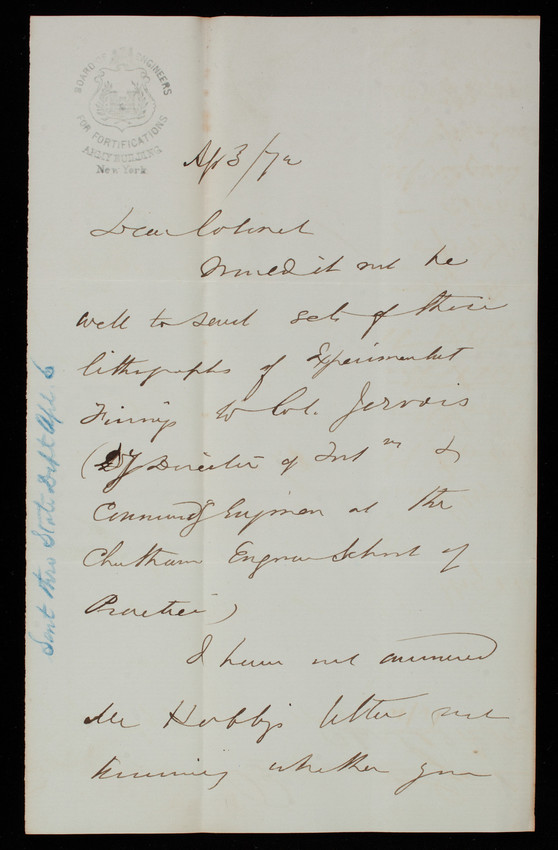 BOARD OF ENGINEERS
FOR FORTIFICATIONS
ARMY BUILDING
New York
Ap 3/72
Dear Colonel
Would it not be
well to send sets of these
lithographs of Experimental
Firings to Col. Jervois
(Dy Director of Fort ns &
Commdg Engineer at the
Chatham Engineer School of
Practice)
I have not answered
Mr Hobby's letter not
knowing whether you
Sent thro State Dept Apl. 6